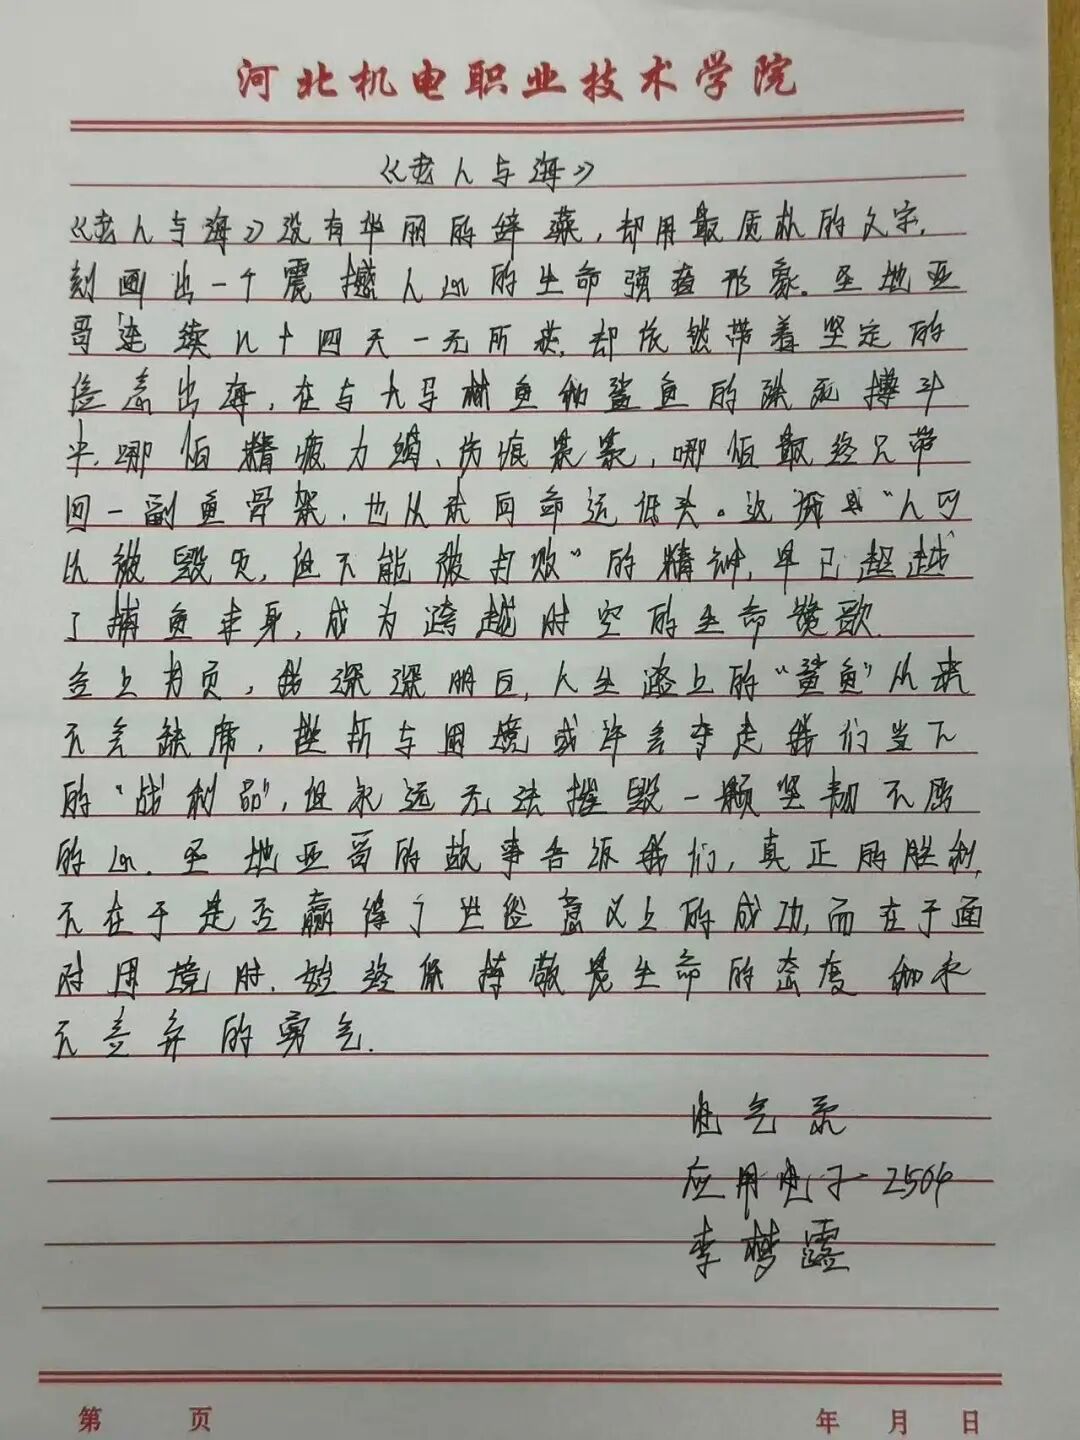 河北机电职业技术学院
《老人与海》
《老人与海》没有华丽的辞藻，却用最质朴的文字，
刻画出一个震撼人心的生命强者形象。圣地亚
哥连续八十四天一无所获，却依然带着坚定的
信念出海，在与大马林鱼和鲨鱼的殊死搏斗
中，哪怕精疲力竭、伤痕累累，哪怕最终只带
回一副鱼骨架，也从未向命运低头。这场"人可
以被毁灭，但不能被打败"的精神，早已超越
了捕鱼本身，成为跨越时空的生命赞歌.
合上书页，我深深明白，人生路上的"鲨鱼"从来
不会缺席，挫折与困境或许会夺走我们当下
的"战利品"，但永远无法摧毁一颗坚韧不屈
的心. 圣地亚哥的故事告诉我们，真正的胜利，
不在于是否赢得了世俗意义上的成功，而在于面
对困境时，始终保持敬畏生命的态度和永
不言弃的勇气.
电气系
应用电子2504
李梦露
第 页 年 月 日